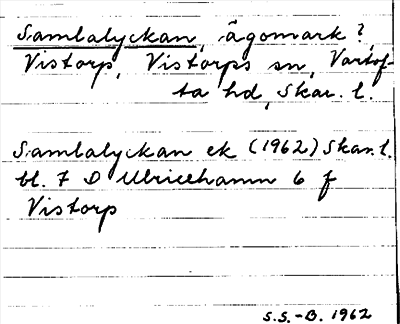 Samlalyckan, ägomark?,
Vistorp, Vistorps sn, Vartof-
ta hd, Skar. l.
Samlalyckan ek (1962) Skar. l.
bl. 7 D Ulricehamn 6 f
Vistorp
S.S.-B. 1962